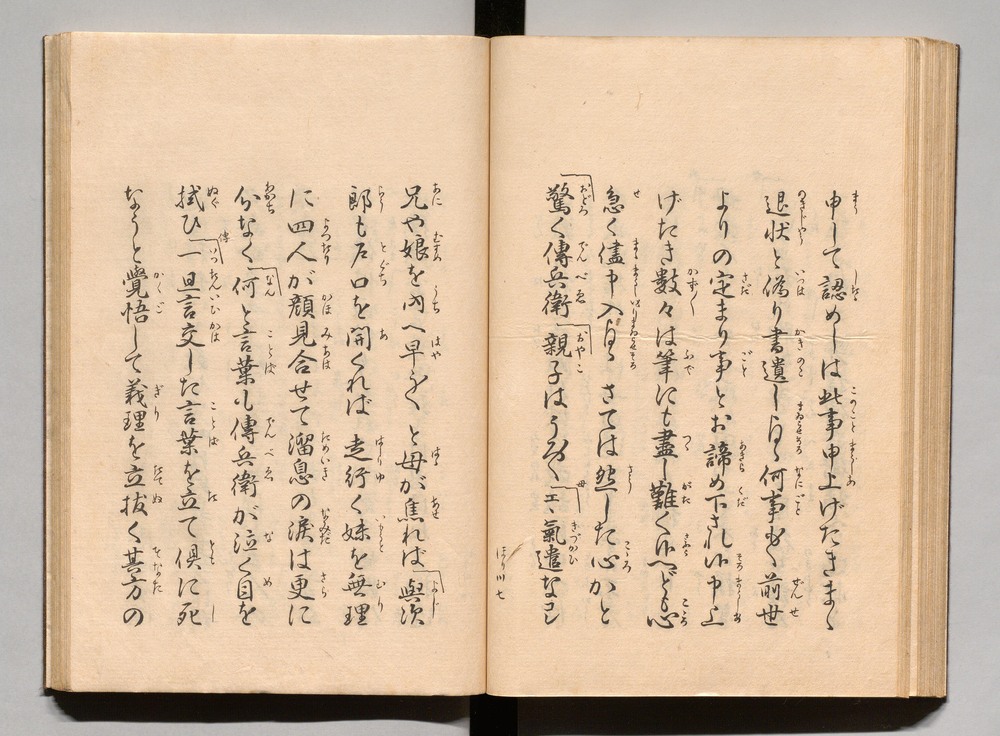 申して認めしは此事申上げたきまゝ
退状と偽り書遺し〓何事も〳〵前世
よりの定まり事とお諦め下され候申上
げたき数々は筆にも盡し難く候へども心
急く儘申入〓さては然した心かと
驚く傳兵衛親子はうろ〳〵エヽ氣遣なコレ
ほり川 七
兄や娘を内へ早う〳〵と母が焦れば與次
郎も戸口を開くれば走行く妹を無理
に四人が顔見合せて溜息の涙は更に
分なく何と言葉も傳兵衛が泣く目を
拭ひ一旦言交した言葉を立て倶に死
なうと覺悟して義理を立抜く其方の